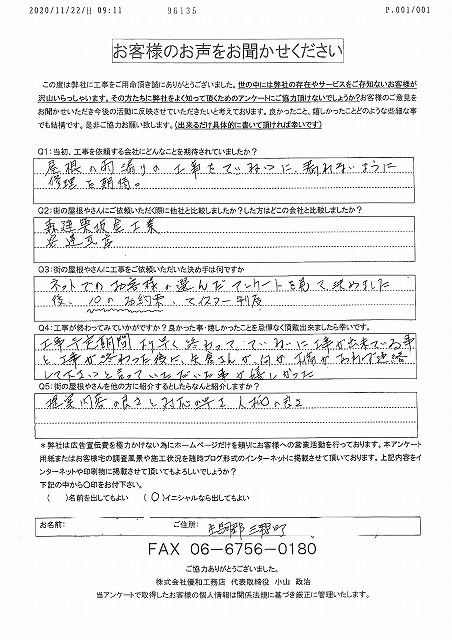 2020/11/22/日 09:11 96135 P.001/001
お客様のお声をお聞かせください
この度は弊社に工事をご用命頂き誠にありがとうございました。世の中には弊社の存在やサービスをご存知ないお客様が
沢山いらっしゃいます。その方たちに弊社をよく知って頂くためのアンケートにご協力頂けないでしょうか?お客様のご意見を
お聞かせいただき今後の活動に反映させていただきたいと考えております。良かったこと、嬉しかったことどのような些細な事
でも結構です。是非ご協力お願い致します。(出来るだけ具体的に書いて頂ければ幸いです)
Q1:当初、工事を依頼する会社にどんなことを期待されていましたか?
屋根の雨漏りの工事をていねいに、漏れないように
修理を期待。
Q2:街の屋根やさんにご依頼いただく際に他社と比較しましたか?した方はどこの会社と比較しましたか?
板金工業
瓦店
Q3:街の屋根やさんに工事をご依頼いただいた決め手は何ですか
ネットでのお客様の選んだアンケートを見て決めました
後、10のお約束、マイスター制度
Q4:工事が終わってみていかがですか?良かった事・嬉しかったことを忌憚なく頂戴出来ましたら幸いです。
工事予定期間より早く終わって、ていねいに工事が出来ている事
と工事が終わった後に、何か不備があれば連絡
して下さいと言っていただいた事が嬉しかった
Q5:街の屋根やさんを他の方に紹介するとしたらなんと紹介しますか?
提案内容の良さと対応の早さ 人柄の良さ
＊弊社は広告宣伝費を極力かけない為にホームページだけを頼りにお客様への営業活動を行っております。本アンケート
用紙またはお客様宅の調査風景や施工状況を随時ブログ形式のインターネットに掲載させて頂いております。上記内容をイ
ンターネットや印刷物に掲載させて頂いてもよろしいでしょうか?
下記の中から〇印をお付下さい。
( )名前を出してもよい (〇)イニシャルなら出してもよい
お名前: ご住所: 生駒郡三郷町
FAX 06-6756-0180
ご協力ありがとうございました。
株式会社優和工務店 代表取締役 小山 政治
当アンケートで取得したお客様の個人情報は関係法規に基づき厳正に管理いたします。